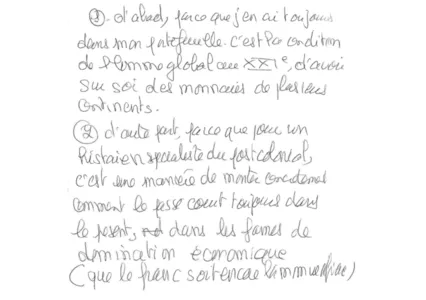 ①. d'abord, parce que j'en ai toujours
dans mon portefeuille. c'est la condition
de l'homme global au XXIe, d'avoir
sur soi des monnaies de plusieurs
continents.
② d'autre part, parce que pour un
historien spécialiste du postcolonial,
c'est une manière de montrer concrètement
comment le passé court toujours dans
le présent, dans les formes de
domination économique
(que le franc soit encore la monnaie